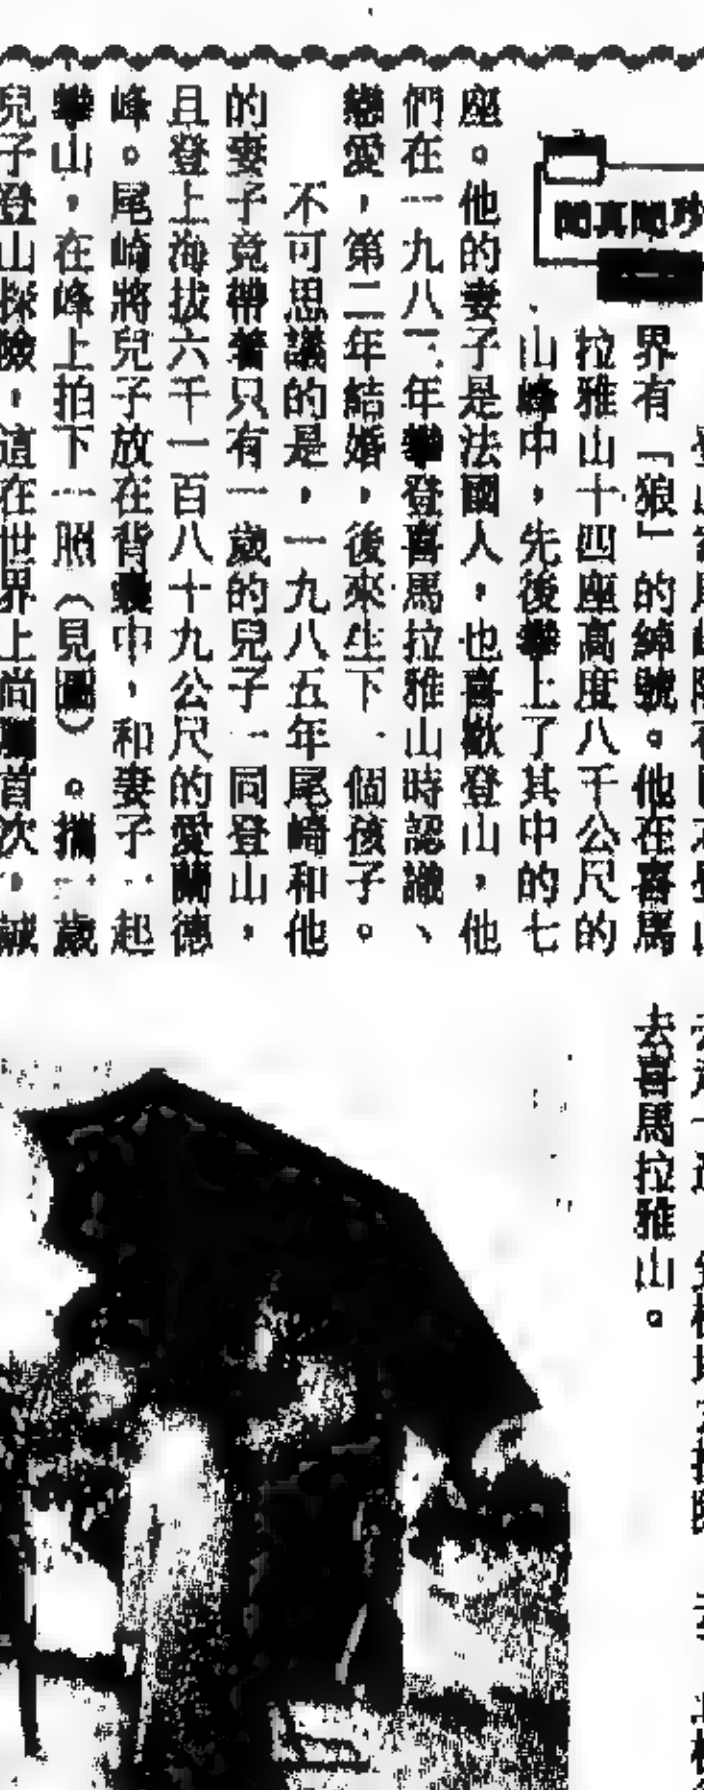 珍聞真聞
界有「狼」的綽號。他在喜馬
拉雅山十四座高度八千公尺的
山峰中，先後攀上了其中的七
座。他的妻子是法國人，也喜歡登山，他
們在一九八二年攀登喜馬拉雅山時認識、
戀愛，第二年結婚，後來生下一個孩子。
不可思議的是，一九八五年尾崎和他
的妻子竟帶著只有一歲的兒子一同登山，
且登上海拔六千一百八十九公尺的愛蘭德
峰。尾崎將兒子放在背囊中，和妻子一起
攀山，在峰上拍下一照（見圖）。攜一歲
兒子登山探險，這在世界上尚屬首次，誠
去喜馬拉雅山。